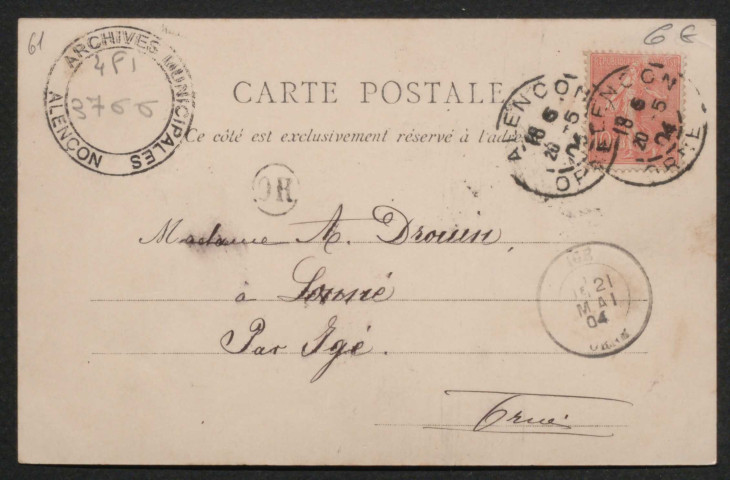 61
6 €
ARCHIVES MUNICIPALES
4FI
3766
ALENÇON
CARTE POSTALE
Ce côté est exclusivement réservé à l'adresse
ALENCON
18 6
20 -5
04
ORNE
ALENCON
18 6
20 -5
04
ORNE
OR
Madame A. Drouin,
à
Par Igé.
Orne
IGÉ
21
MAI
04
ORNE